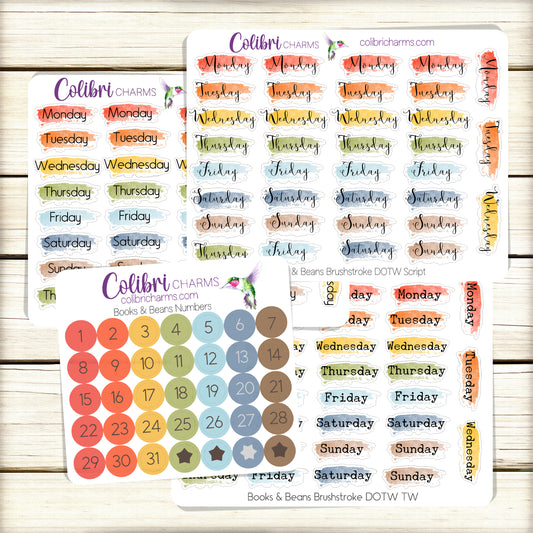 Colibri CHARMS
colibricharms.com
Monday Monday Monday Monday Monday
Tuesday Tuesday Tuesday Tuesday Tuesday
Wednesday Wednesday Wednesday Wednesday Wednesday
Thursday Thursday Thursday Thursday
Friday Friday Friday Friday
Saturday Saturday Saturday Saturday
Sunday Sunday Sunday Sunday
Thursday Friday Saturday Sunday
Books & Beans Brushstroke DOTW Script
Colibri CHARMS
Monday Monday
Tuesday Tuesday
Wednesday Wednesday
Thursday Thursday
Friday Friday
Saturday Saturday
Sunday
Colibri CHARMS
colibricharms.com
Books & Beans Numbers
1 2 3 4 5 6 7
8 9 10 11 12 13 14
15 16 17 18 19 20 21
22 23 24 25 26 27 28
29 30 31
Monday Monday
Tuesday Tuesday
Wednesday Wednesday Wednesday
Thursday Thursday
Friday Friday
Saturday Saturday
Sunday Sunday
Saturday Sunday
Books & Beans Brushstroke DOTW TW